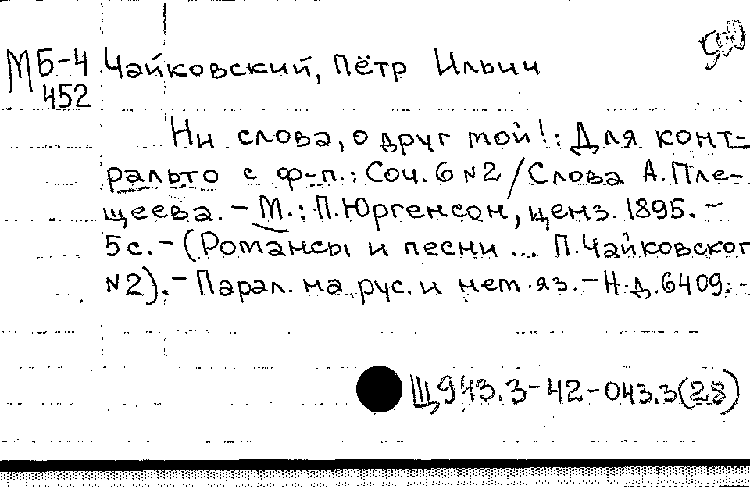 МБ-4 Чайковский, Пётр Ильич
452
Ни слова, о друг мой!: Для конт-
ральто с ф-п.: Соч. 6 №2 / Слова А. Пле-
щеева. - М.: П. Юргенсон, ценз. 1895. -
5 с. - (Романсы и песни ... П. Чайковског
№2). - Парал. на рус. и нем. яз. - Н. д. 6409. -
Щ943.3-42-043.3(28)